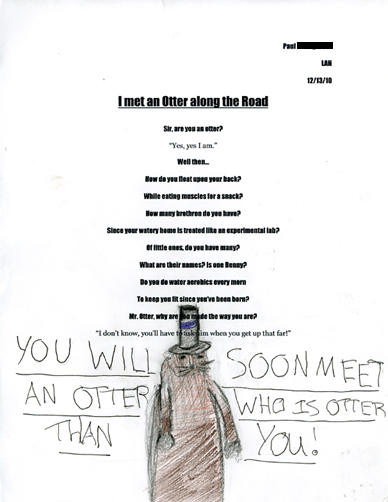 Paul
LAN
12/13/10
I met an Otter along the Road
Sir, are you an otter?
"Yes, yes I am."
Well then...
How do you float upon your back?
While eating muscles for a snack?
How many brethren do you have?
Since your watery home is treated like an experimental lab?
Of little ones, do you have many?
What are their names? Is one Benny?
Do you do water aerobics every morn
To keep you fit since you've been born?
Mr. Otter, why are you made the way you are?
"I don't know, you'll have to ask him when you get up that far!"
YOU WILL SOON MEET
AN OTTER WHO IS OTTER
THAN YOU!